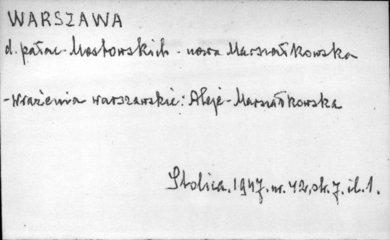 WARSZAWA
d. pałac Mostowskich - nowa Marszałkowska
- Wrażenia warszawskie: Aleje - Marszałkowska
Stolica, 1947, nr. 42, str. 7, il. 1.